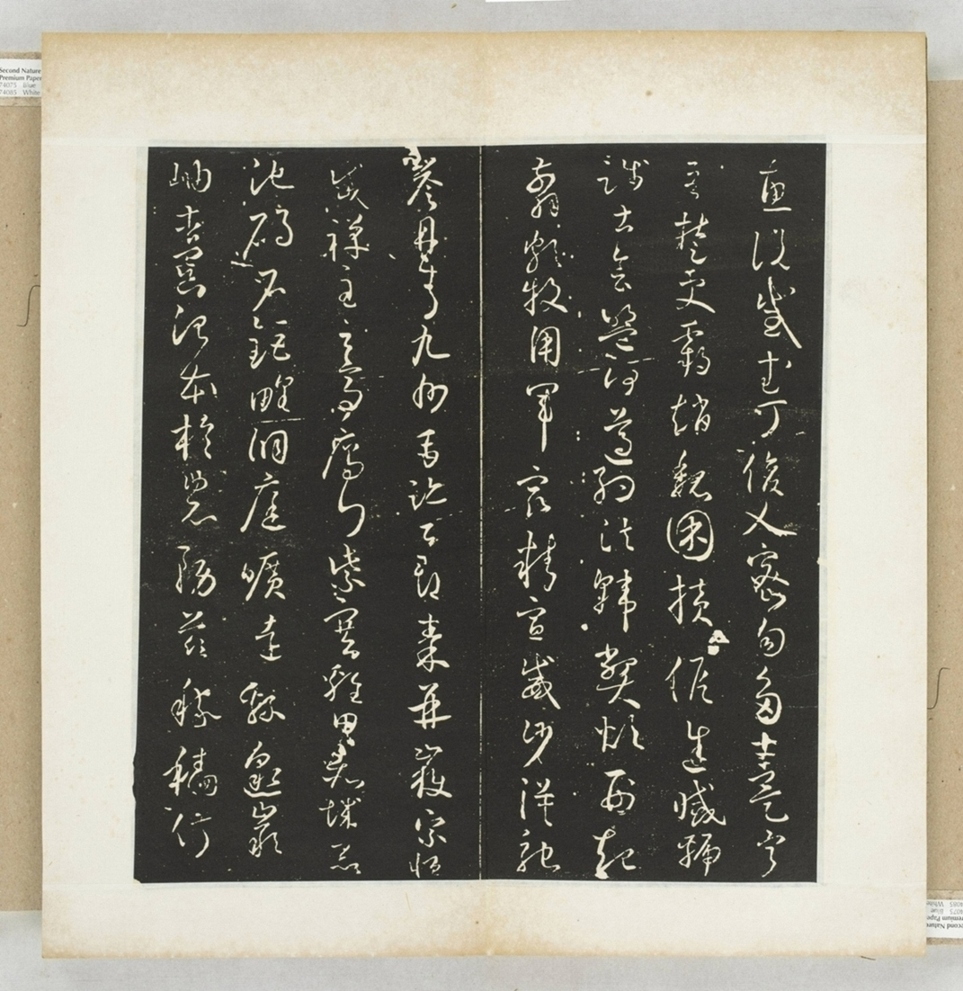 惠說感武丁俊乂密勿多士寔寧
晉楚更霸趙魏困橫假途滅虢
踐土會盟何遵約法韓弊煩刑起
翦頗牧用軍最精宣威沙漠馳
譽丹青九州禹跡百郡秦并嶽宗恒
岱禪主云亭鴈門紫塞雞田赤城昆
池碣石鉅野洞庭曠遠緜邈巖
岫杳冥治本於農務茲稼穡俶
Second Nature
Premium Paper